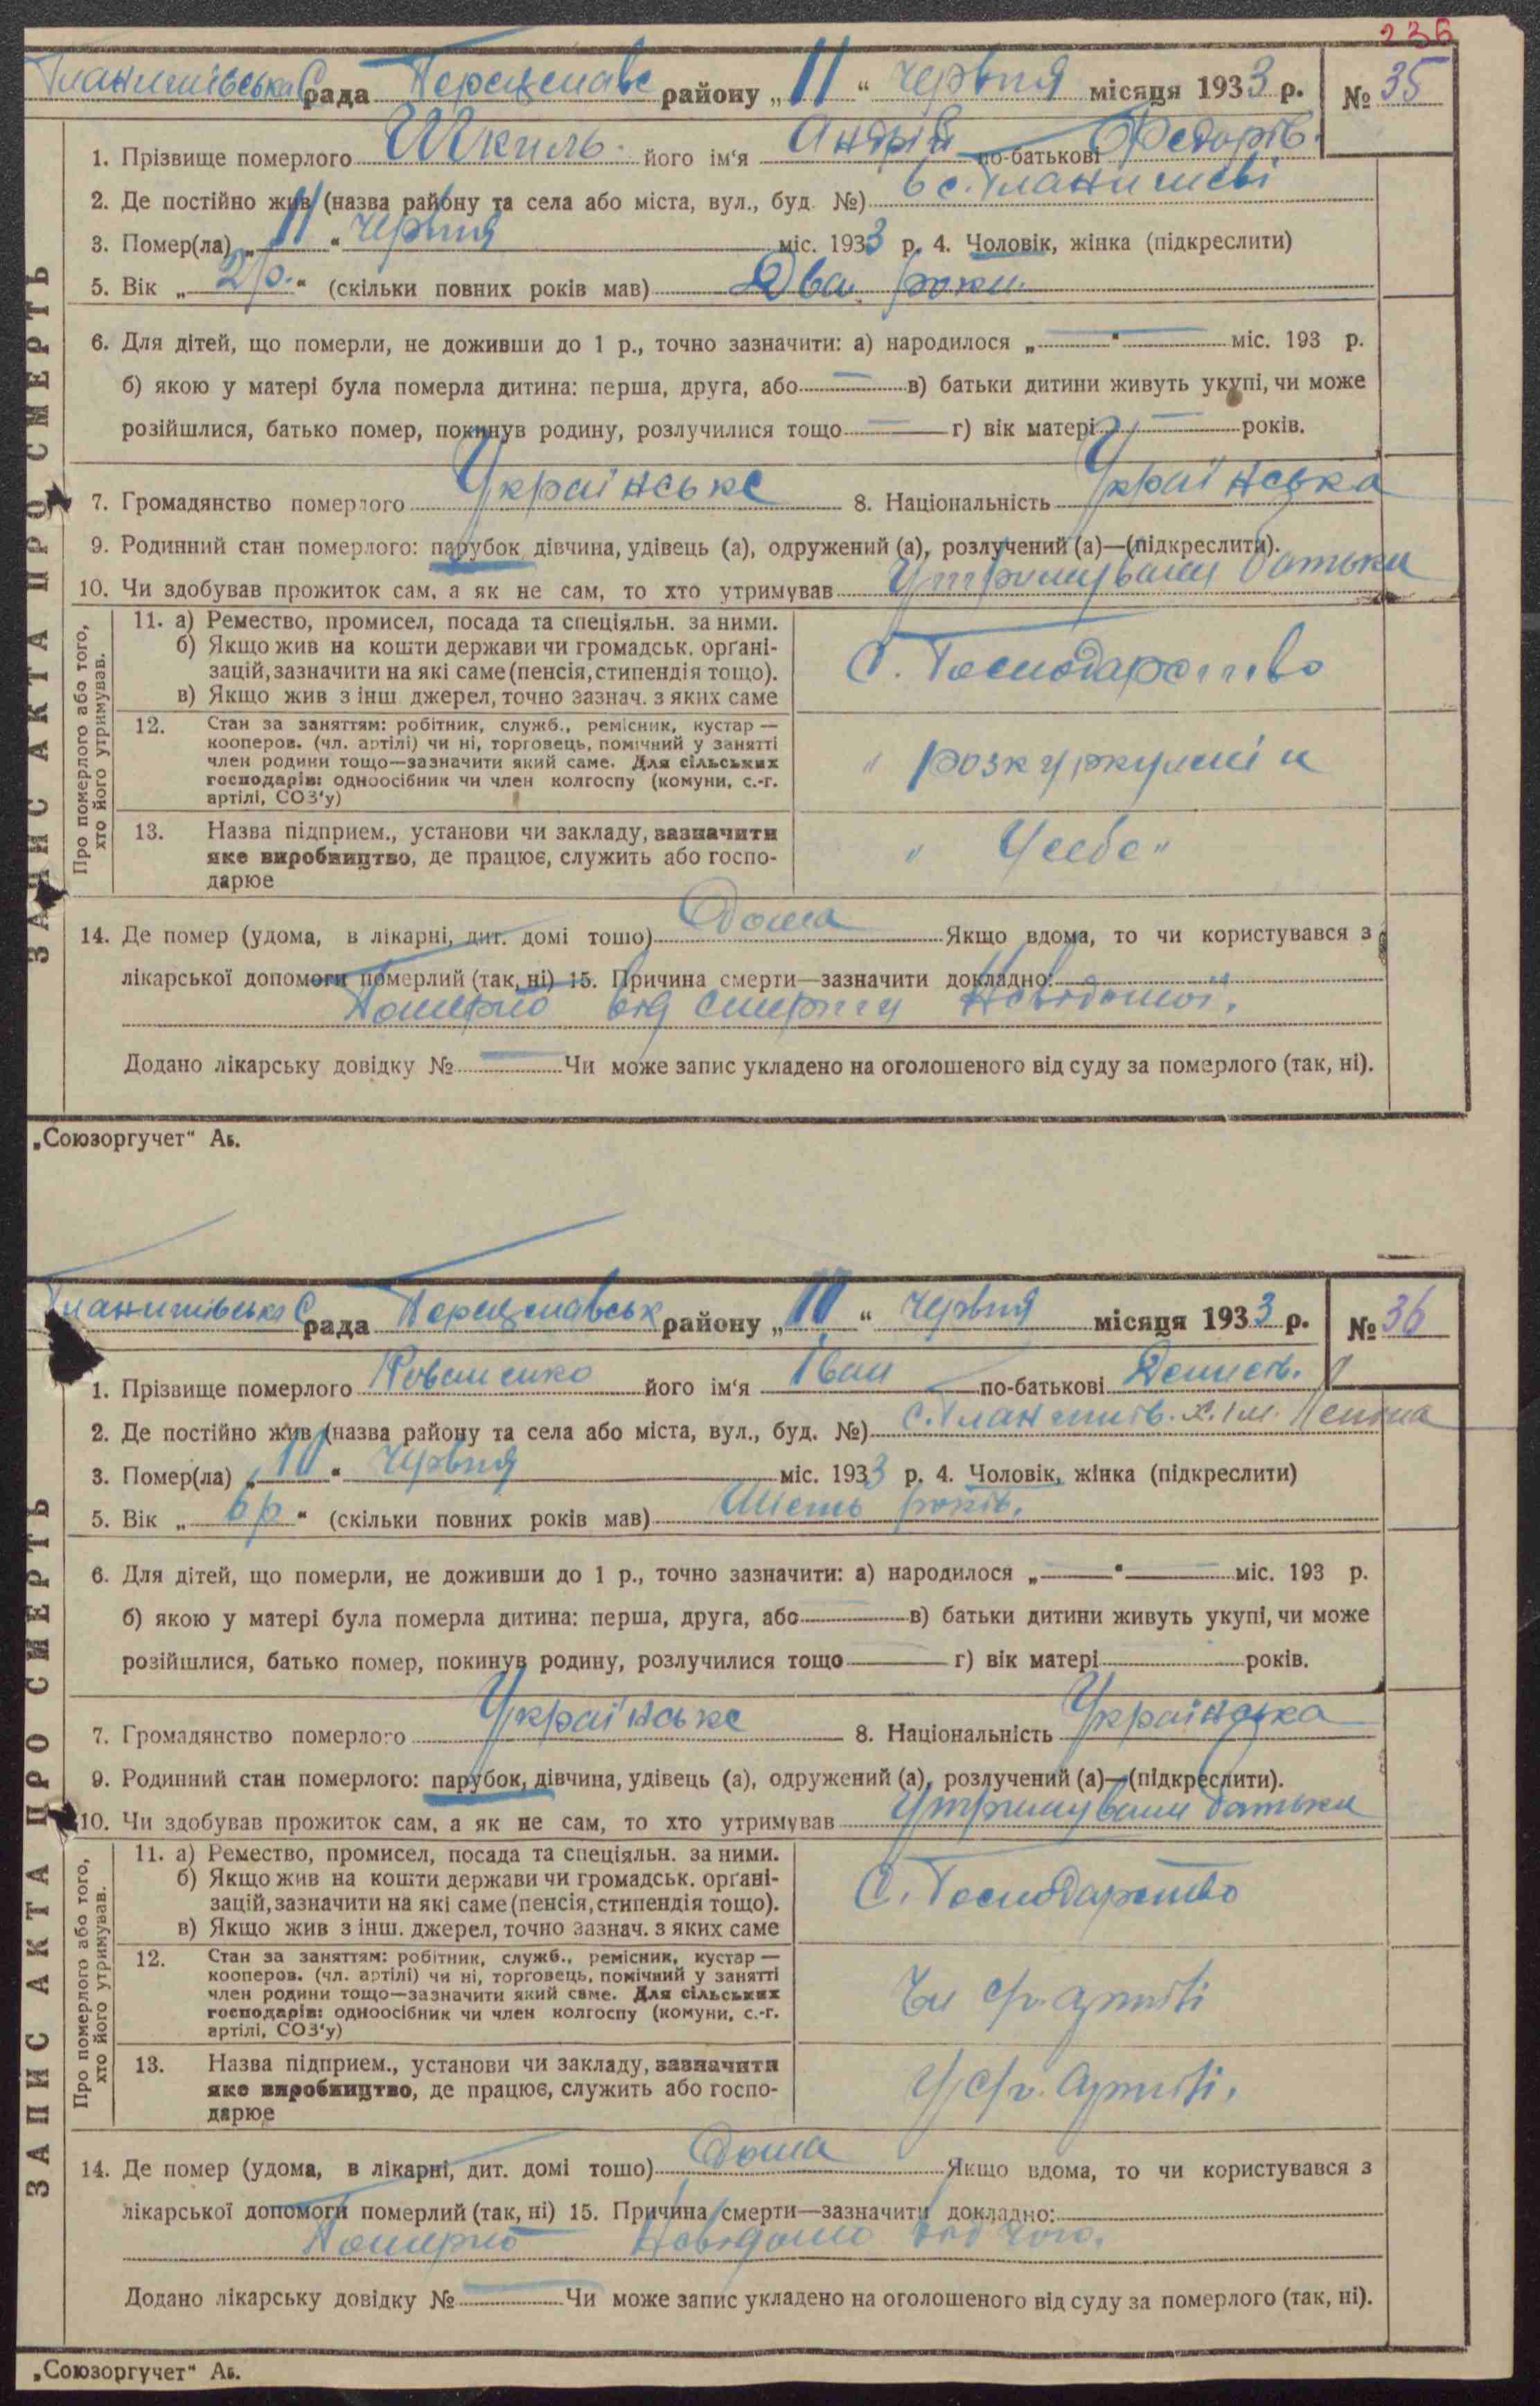 236
Гланишівська С рада Переяславс району „11“ Червня місяця 1933 р. № 35
1. Прізвище померлого Шкиль його ім‘я Андрій по-батькові Федорів.
2. Де постійно жив (назва району та села або міста, вул., буд. №) в с. Гланишеві
3. Помер(ла) „11“ Червня міс. 1933 р. 4. Чоловік, жінка (підкреслити)
5. Вік „2/р.“ (скільки повних років мав) Два роки.
6. Для дітей, що померли, не доживши до 1 р., точно зазначити: а) народилося „—“— міс. 193 р.
б) якою у матері була померла дитина: перша, друга, або — в) батьки дитини живуть укупі, чи може
розійшлися, батько помер, покинув родину, розлучилися тощо — г) вік матері — років.
7. Громадянство померлого Українське 8. Національність Українська
9. Родинний стан померлого: парубок, дівчина, удівець (а), одружений (а), розлучений (а)—(підкреслити).
10. Чи здобував прожиток сам, а як не сам, то хто утримував Утримували батьки
ЗАПИС АКТА ПРО СМЕРТЬ
Про померлого або того, хто його утримував.
11. а) Ремество, промисел, посада та спеціяльн. за ними.
б) Якщо жив на кошти держави чи громадськ. органі-
зацій, зазначити на які саме (пенсія, стипендія тощо).
в) Якщо жив з інш. джерел, точно зазнач. з яких саме
С. Господарство
12. Стан за заняттям: робітник, служб., ремісник, кустар —
кооперов. (чл. артілі) чи ні, торговець, помічний у занятті
член родини тощо—зазначити який саме. Для сільських
господарів: одноосібник чи член колгоспу (комуни, с.-г.
артілі, СОЗ‘у)
" розкуркулені
13. Назва підприєм., установи чи закладу, зазначити
яке виробництво, де працює, служить або госпо-
дарює
" У себе "
14. Де помер (удома, в лікарні, дит. домі тощо) Дома Якщо вдома, то чи користувався з
лікарської допомоги померлий (так, ні) 15. Причина смерти—зазначити докладно:
Померло від смерти Невідомої.
Додано лікарську довідку № — Чи може запис укладено на оголошеного від суду за померлого (так, ні).
„Союзоргучет“ Аб.
Гланишівська С рада Переяславськ району „10“ Червня місяця 1933 р. № 36
1. Прізвище померлого його ім‘я Іван по-батькові Денисів.
2. Де постійно жив (назва району та села або міста, вул., буд. №) С. Гланишів. х. Ім. Леніна
3. Помер(ла) „10“ Червня міс. 1933 р. 4. Чоловік, жінка (підкреслити)
5. Вік „6 р“ (скільки повних років мав) Шість років.
6. Для дітей, що померли, не доживши до 1 р., точно зазначити: а) народилося „—“— міс. 193 р.
б) якою у матері була померла дитина: перша, друга, або — в) батьки дитини живуть укупі, чи може
розійшлися, батько помер, покинув родину, розлучилися тощо — г) вік матері років.
7. Громадянство померлого Українське 8. Національність Українська
9. Родинний стан померлого: парубок, дівчина, удівець (а), одружений (а), розлучений (а)—(підкреслити).
10. Чи здобував прожиток сам, а як не сам, то хто утримував Утримували батьки
ЗАПИС АКТА ПРО СМЕРТЬ
Про померлого або того, хто його утримував.
11. а) Ремество, промисел, посада та спеціяльн. за ними.
б) Якщо жив на кошти держави чи громадськ. органі-
зацій, зазначити на які саме (пенсія, стипендія тощо).
в) Якщо жив з інш. джерел, точно зазнач. з яких саме
С. Господарство
12. Стан за заняттям: робітник, служб., ремісник, кустар —
кооперов. (чл. артілі) чи ні, торговець, помічний у занятті
член родини тощо—зазначити який саме. Для сільських
господарів: одноосібник чи член колгоспу (комуни, с.-г.
артілі, СОЗ‘у)
Чл с/г. артілі
13. Назва підприєм., установи чи закладу, зазначити
яке виробництво, де працює, служить або госпо-
дарює
У с/г. Артілі.
14. Де помер (удома, в лікарні, дит. домі тощо) Дома Якщо вдома, то чи користувався з
лікарської допомоги померлий (так, ні) 15. Причина смерти—зазначити докладно:
Померло Невідомо від чого.
Додано лікарську довідку № — Чи може запис укладено на оголошеного від суду за померлого (так, ні).
„Союзоргучет“ Аб.